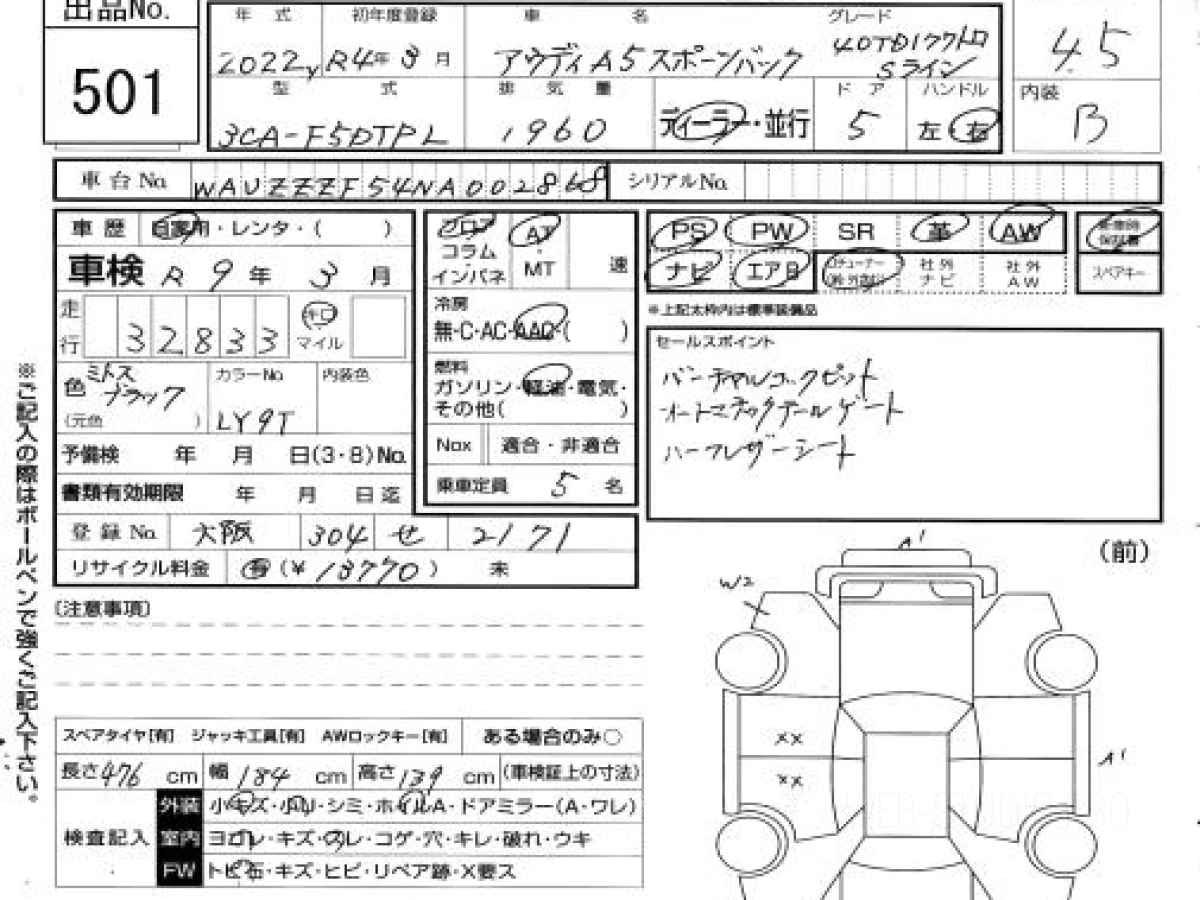 出品No.
501
年式 初年度登録 車名 グレード
2022y R4年3月 アウディA5スポーツバック 40TDIクワトロ
Sライン
4.5
型式 排気量 ディーラー・並行 ドア ハンドル 内装
3CA-F5DTPL 1960 5 左・右 B
車台No. WAUZZZF54NA002868 シリアルNo.
車歴 自家用・レンタ・( )
車検 R9年3月
走行 32833 キロ マイル
色 ミトスブラック カラーNo. LY9T 内装色
(元色 )
予備検 年 月 日(3・8)No.
書類有効期限 年 月 日迄
登録No. 大阪 304 せ 2171
リサイクル料金 有(¥13770)未
フロア
コラム
インパネ
AT
MT
速
冷房
無・C・AC・AAC・( )
燃料
ガソリン・軽油・電気・
その他( )
Nox 適合・非適合
乗車定員 5 名
PS PW SR 革 AW
ナビ エアB 社外ナビ 社外AW
スペアキー
※上記太枠内は標準装備品
セールスポイント
バーチャルコックピット
オートマチックテールゲート
ハーフレザーシート
(注意事項)
※ご記入の際はボールペンで強くご記入下さい。
スペアタイヤ[有] ジャッキ工具[有] AWロックキー[有] ある場合のみ○
長さ476cm 幅184cm 高さ139cm (車検証上の寸法)
検査記入
外装 小キズ・小凹・シミ・ホイルA・ドアミラー(A・ワレ)
室内 ヨゴレ・キズ・スレ・コゲ・穴・キレ・破れ・ウキ
FW トビ石・キズ・ヒビ・リペア跡・X要ス
(前)
A1
W2
XX
XX
A1